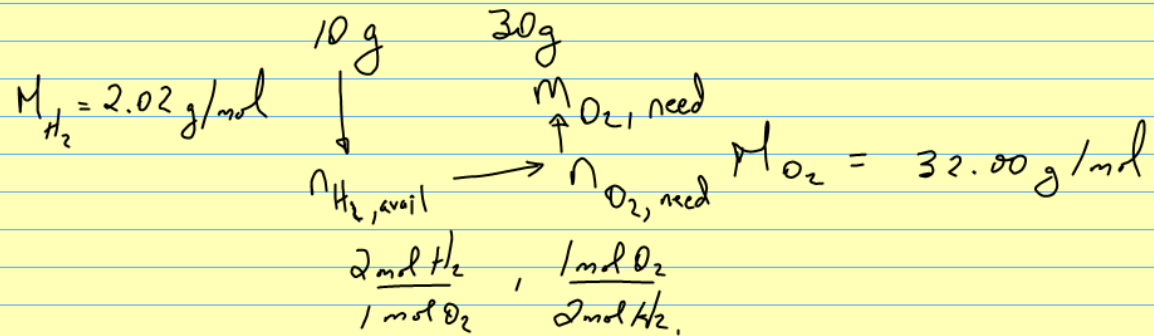 10 g 30g
M_H₂ = 2.02 g/mol m_O₂, need
n_H₂, avail → n_O₂, need M_O₂ = 32.00 g/mol
2 mol H₂ / 1 mol O₂ , 1 mol O₂ / 2 mol H₂.